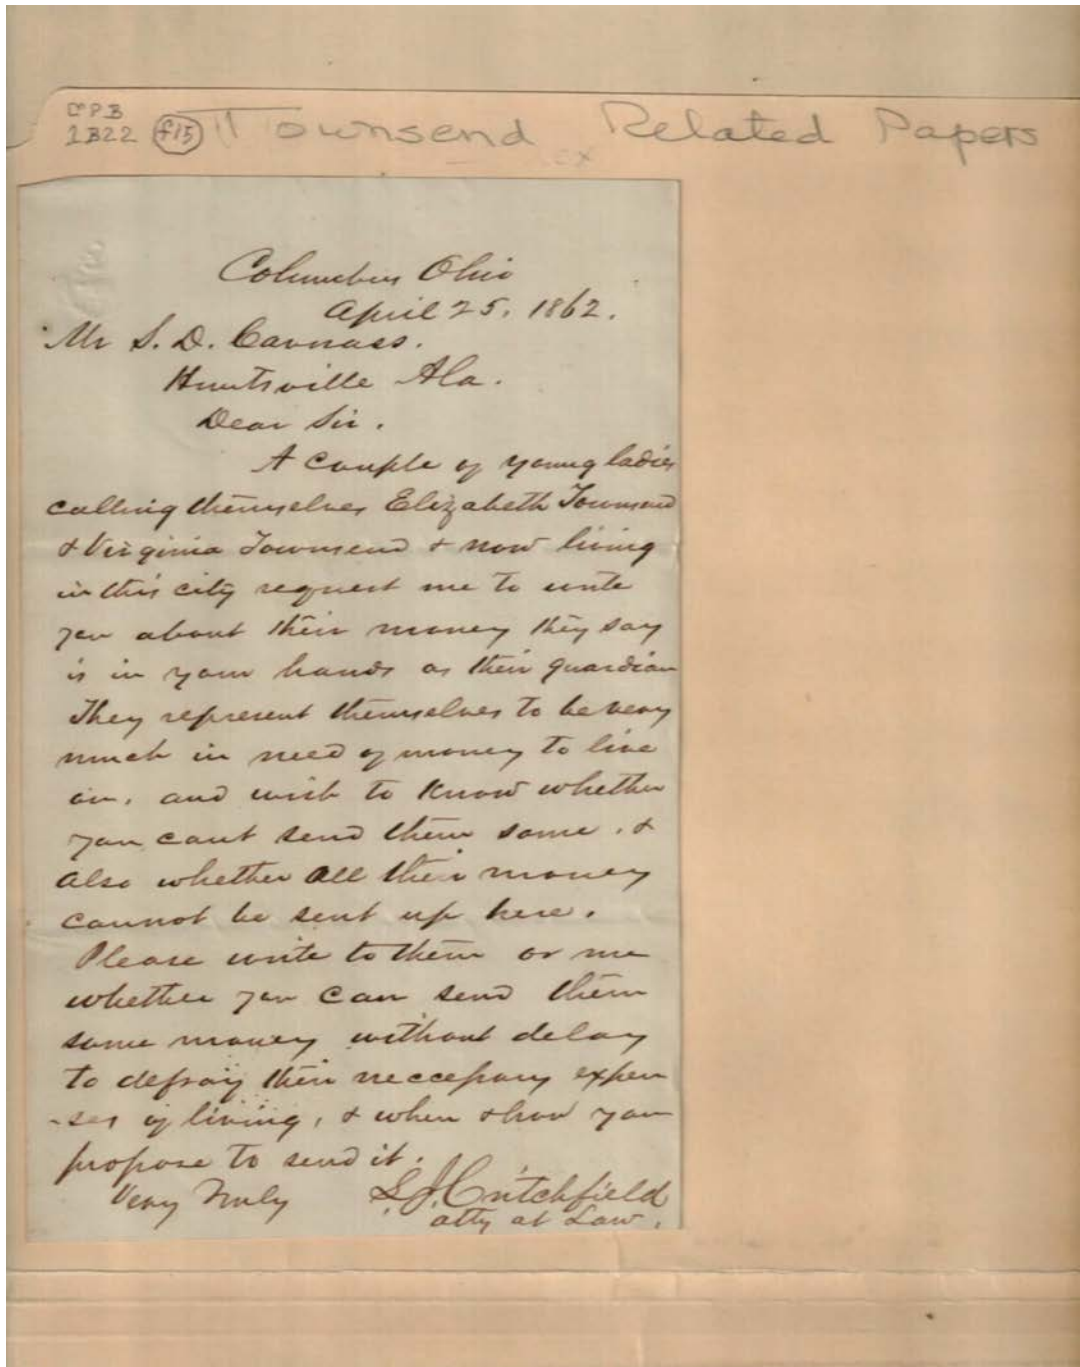 CPB
1B22 f15 Townsend Related Papers
Columbus Ohio
April 25, 1862.
Mr S. D. Cavnass.
Huntsville Ala.
Dear Sir.
A couple of young ladies
calling themselves Elizabeth Townsend
& Virginia Townsend & now living
in this city request me to write
you about their money they say
is in your hands as their guardian
They represent themselves to be very
much in need of money to live
on, and wish to know whether
you cant send them some, &
also whether all their money
cannot be sent up here.
Please write to them or me
whether you can send them
some money without delay
to defray their neccessary expen
-ses of living, & when & how you
propose to send it.
Very Truly S. J. Critchfield
atty at Law.